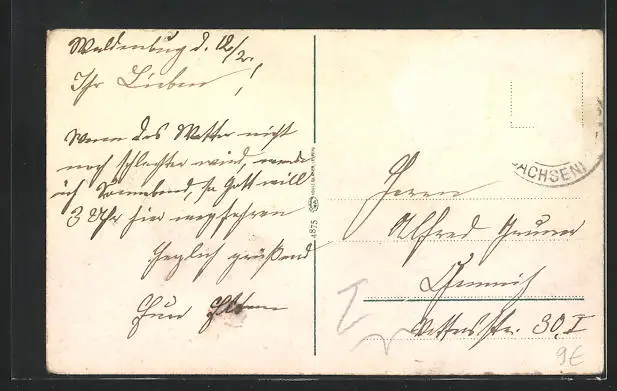 Waldenburg d. 12/2.
Ihr Lieben!
Wenn das Wetter nicht
noch schlechter wird, werde
ich Sonnabend, so Gott will
3 Uhr hier wegfahren
Herzlich grüßend
Eure
4875
SACHSEN
Herrn
Alfred Gruner
Chemnitz
str. 30, I
9€